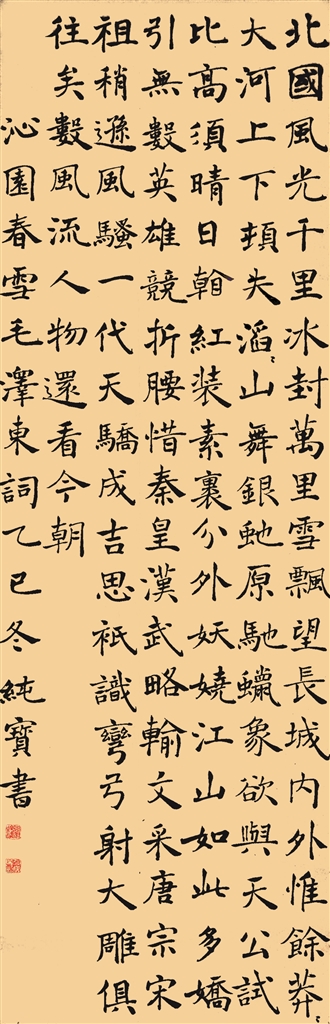 北國風光千里冰封萬里雪飄望長城內外惟餘莽〻
大河上下頓失滔〻山舞銀虵原馳蠟象欲與天公試
比高須晴日看紅装素裹分外妖嬈江山如此多嬌
引無數英雄競折腰惜秦皇漢武略輸文采唐宗宋
祖稍遜風騷一代天驕成吉思衹識彎弓射大雕俱
往矣數風流人物還看今朝
沁園春雪毛澤東詞乙巳冬純寶書